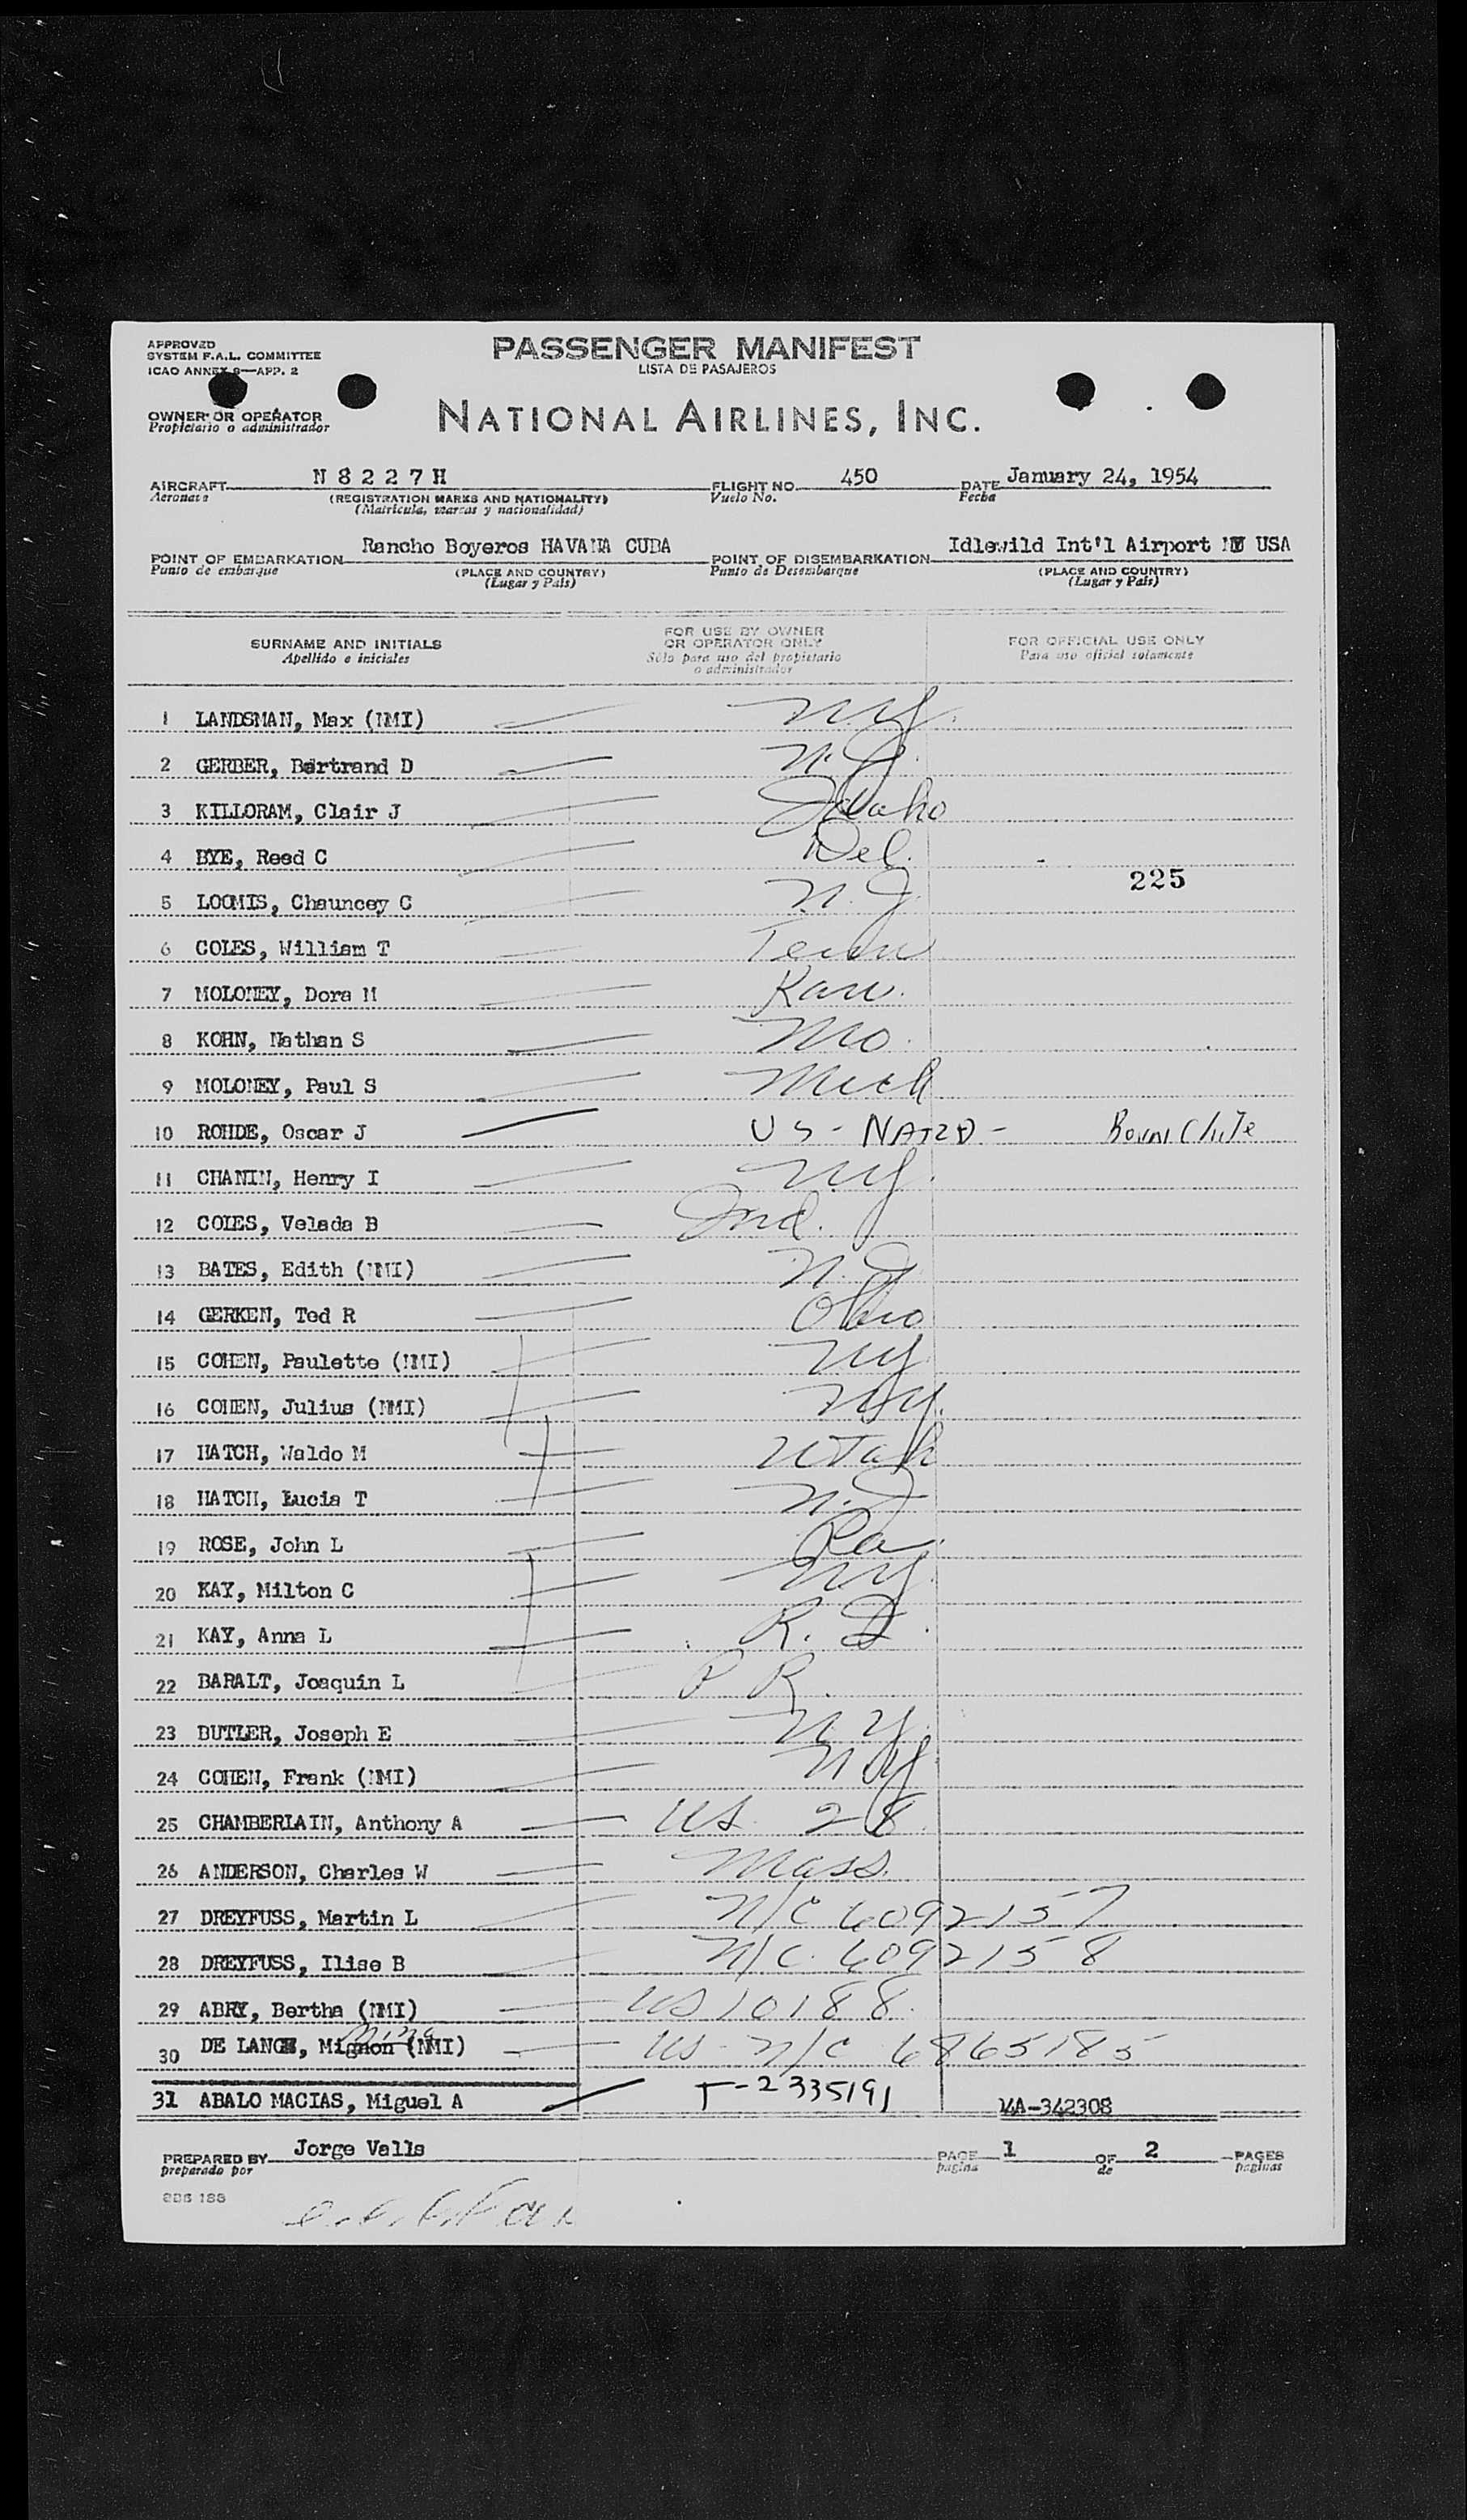 APPROVED
SYSTEM F.A.L. COMMITTEE
ICAO ANNEX 9—APP. 2
PASSENGER MANIFEST
LISTA DE PASAJEROS
OWNER OR OPERATOR
Propietario o administrador
NATIONAL AIRLINES, INC.
AIRCRAFT N 8 2 2 7 H FLIGHT NO. 450 DATE January 24, 1954
Aeronave (REGISTRATION MARKS AND NATIONALITY) Vuelo No. Fecha
(Matricula, marcas y nacionalidad)
POINT OF EMBARKATION Rancho Boyeros HAVANA CUBA POINT OF DISEMBARKATION Idlewild Int'l Airport NY USA
Punto de embarque (PLACE AND COUNTRY) Punto de Desembarque (PLACE AND COUNTRY)
(Lugar y País) (Lugar y País)
SURNAME AND INITIALS
Apellido e iniciales
FOR USE BY OWNER
OR OPERATOR ONLY
Sólo para uso del propietario
o administrador
FOR OFFICIAL USE ONLY
Para uso oficial solamente
1 LANDSMAN, Max (NMI) NY.
2 GERBER, Bertrand D N.J.
3 KILLORAM, Clair J Idaho
4 BYE, Reed C Del.
225
5 LOOMIS, Chauncey C N.J.
6 COLES, William T Tenn
7 MOLONEY, Dora M Kan.
8 KOHN, Nathan S Mo.
9 MOLONEY, Paul S Mich
10 ROHDE, Oscar J US - NATZD - Born Chile
11 CHANIN, Henry I NY.
12 COLES, Velada B Ind.
13 BATES, Edith (NMI) N.J.
14 GERKEN, Ted R Ohio
15 COHEN, Paulette (NMI) NY
16 COHEN, Julius (NMI) NY.
17 HATCH, Waldo M Utah
18 HATCH, Lucia T N.J.
19 ROSE, John L Pa.
20 KAY, Milton C NY.
21 KAY, Anna L R. I.
22 BARALT, Joaquin L P R.
23 BUTLER, Joseph E N.Y.
24 COHEN, Frank (NMI) NY
25 CHAMBERLAIN, Anthony A US 28
26 ANDERSON, Charles W Mass.
27 DREYFUSS, Martin L N/C 6092157
28 DREYFUSS, Ilise B N/C. 6092158
29 ABRY, Bertha (NMI) US 10188.
Mina
30 DE LANGE, Mignon (NMI) US - N/C 6865185
31 ABALO MACIAS, Miguel A T-2335191 VA-342308
PREPARED BY Jorge Valls PAGE 1 OF 2 PAGES
preparado por página de páginas